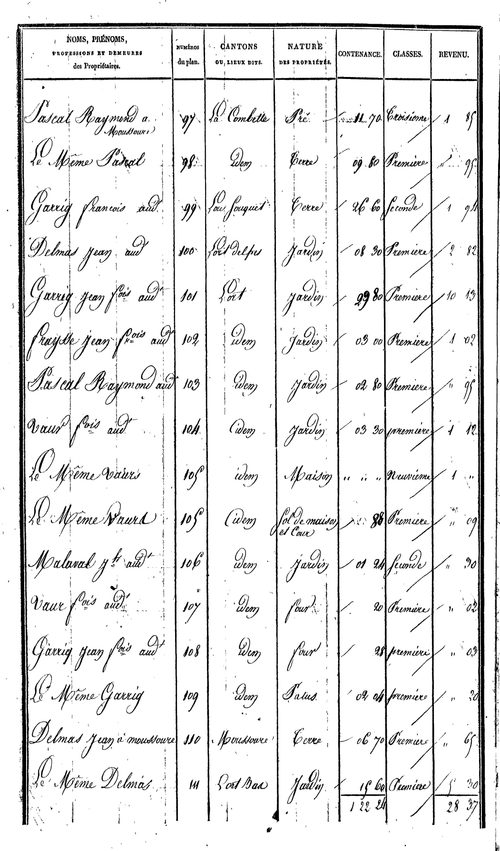 NOMS, PRÉNOMS, PROFESSIONS ET DEMEURES des Propriétaires. NUMÉROS du plan. CANTONS OU, LIEUX DITS. NATURE DES PROPRIÉTÉS. CONTENANCE. CLASSES. REVENU.
Pascal Raymond a Moussoure 97 La Combette Pré 11 70 Troisieme 1 85
Le Même Pascal 98 idem Terre 09 80 Premiere " 95
Garrig francois aud.t 99 Terre 26 60 Seconde 1 94
Delmas Jean aud.t 100 Jardin 08 30 Premiere 2 82
Garrig Jean f.ois aud.t 101 L'ort Jardin 29 80 Premiere 10 13
fraysse Jean f.ois aud.t 102 idem Jardin 03 00 Premiere 1 02
Pascal Raymond aud.t 103 idem Jardin 02 80 Premiere " 95
Vaur f.ois aud.t 104 idem Jardin 03 30 premiere 1 12
Le Même Vaurs 105 idem Maison " " " Neuvieme 1 "
Le Même Vaurs 105 idem Sol de maison et Cour 86 Premiere " 09
Malaval aud.t 106 idem Jardin 01 24 Seconde " 30
Vaur f.ois aud.t 107 idem four 20 Premiere " 02
Garrig Jean f.ois aud.t 108 idem four 28 premiere " 03
Le Même Garrig 109 idem Patus 02 04 premiere " 20
Delmas Jean à moussoure 110 Moussoure Terre 06 70 Premiere " 65
Le Même Delmas 111 L'ort Bas Jardin 15 60 Premiere 5 30
1 22 24 28 37